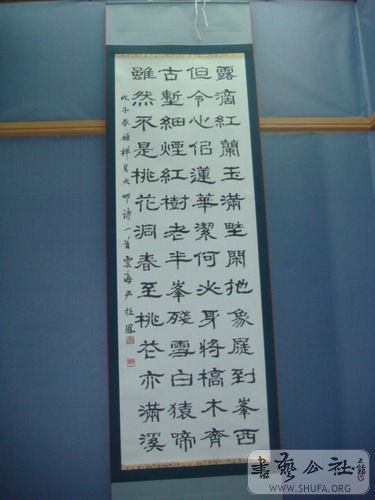 露滴紅蘭玉滿畦閑拖象屣到峯西
但令心佀蓮華潔何必身將槁木齊
古塹細煙紅樹老半峯殘雪白猿啼
雖然不是桃花洞春至桃花亦滿溪
戊子春 禅月大師诗一首 雲海尹桂鳳
書藝公社
WWW.SHUFA.ORG